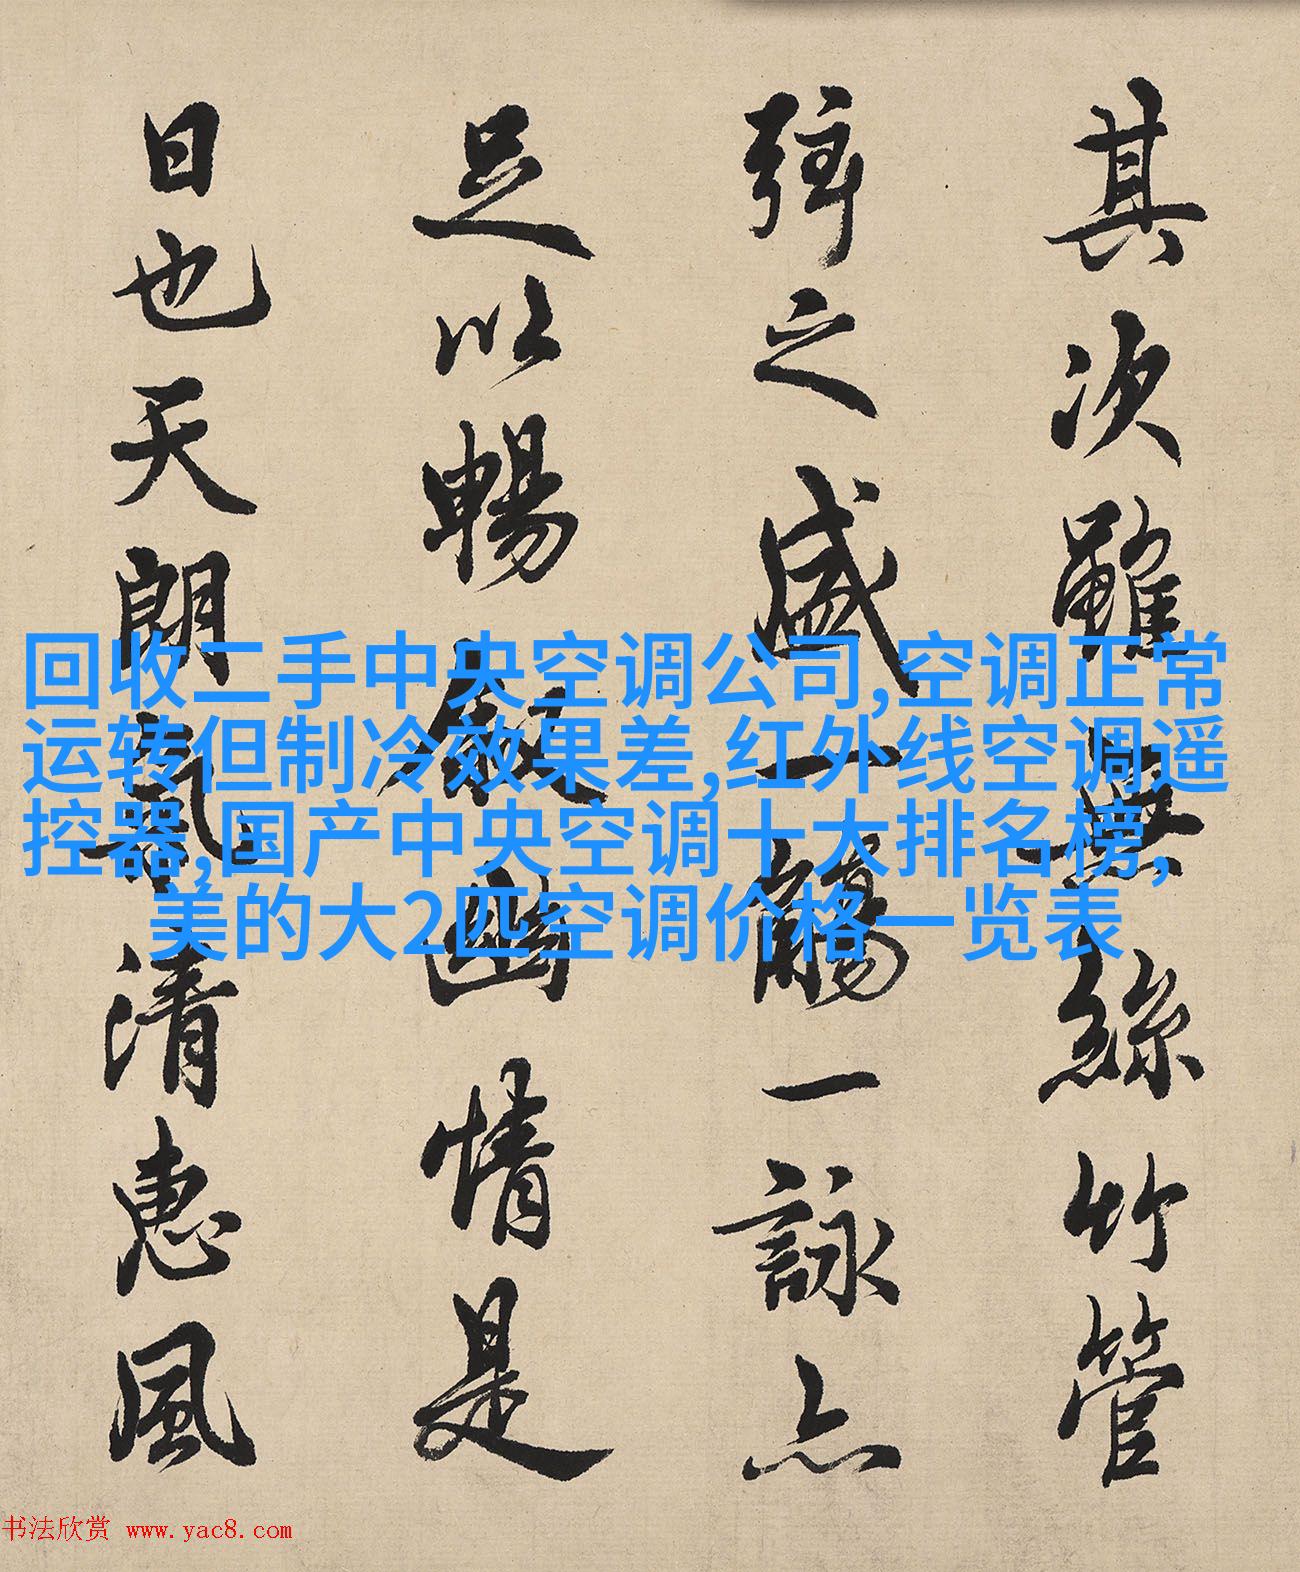 其次雖無絲竹管
弦之盛一觴一詠亦
足以暢叙幽情是
日也天朗氣清惠風
回收二手中央空调公司,空调正常
运转但制冷效果差,红外线空调遥
控器,国产中央空调十大排名榜,
美的大2匹空调价格一览表
书法欣赏 www.yac8.com